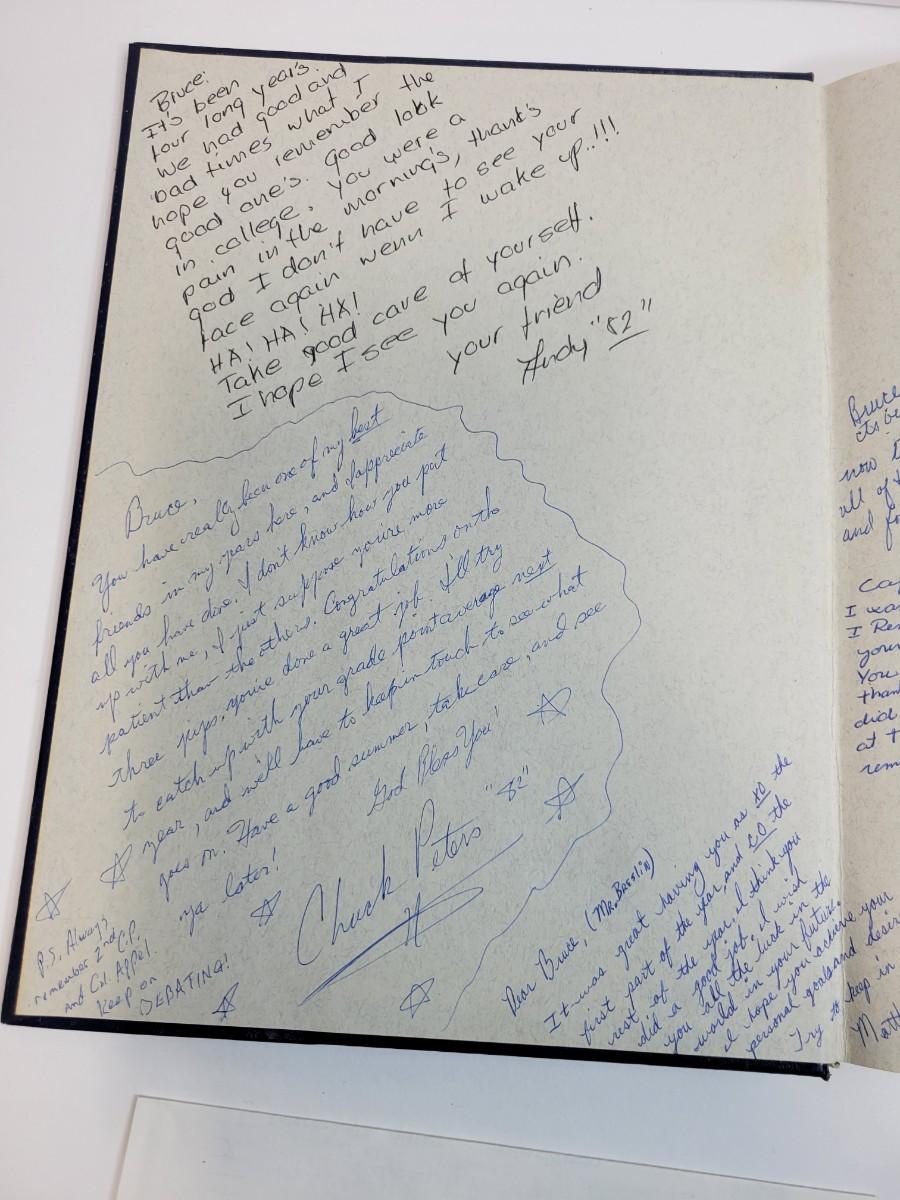 Bruce:
It's been
four long year's.
We had good and
bad times what I
hope you remember the
good one's. good look
in college, you were a
pain in the morning's, thank's
god I don't have to see your
face again wenn I wake up..!!!
HA! HA! HA!
Take good care of yourself.
I hope I see you again.
your friend
Andy "82"
Bruce,
You have really been one of my best
friends in my years here, and I appreciate
all you have done. I don't know how you put
up with me, I just suppose you're more
patient than the others. Congratulations on the
three pips, you've done a great job. I'll try
to catch up with your grade point average next
year, and we'll have to keep in touch to see what
goes on. Have a good summer, take care, and see
ya later!
God Bless You!
Chuck Peters "82"
P.S. Always
remember 2nd C.P.
and Col. Appel.
Keep on
DEBATING!
Dear Bruce, (Mr. Breslin)
It was great having you as XO the
first part of the year, and CO the
rest of the year. I think you
did a good job. I wish
you all the luck in the
world in your future.
I hope you achieve your
personal goals and desir
Try to keep in
Matt
Bruce
its be
now
all of
and fo
I was
I Rem
your
You
than
did
at t
rem